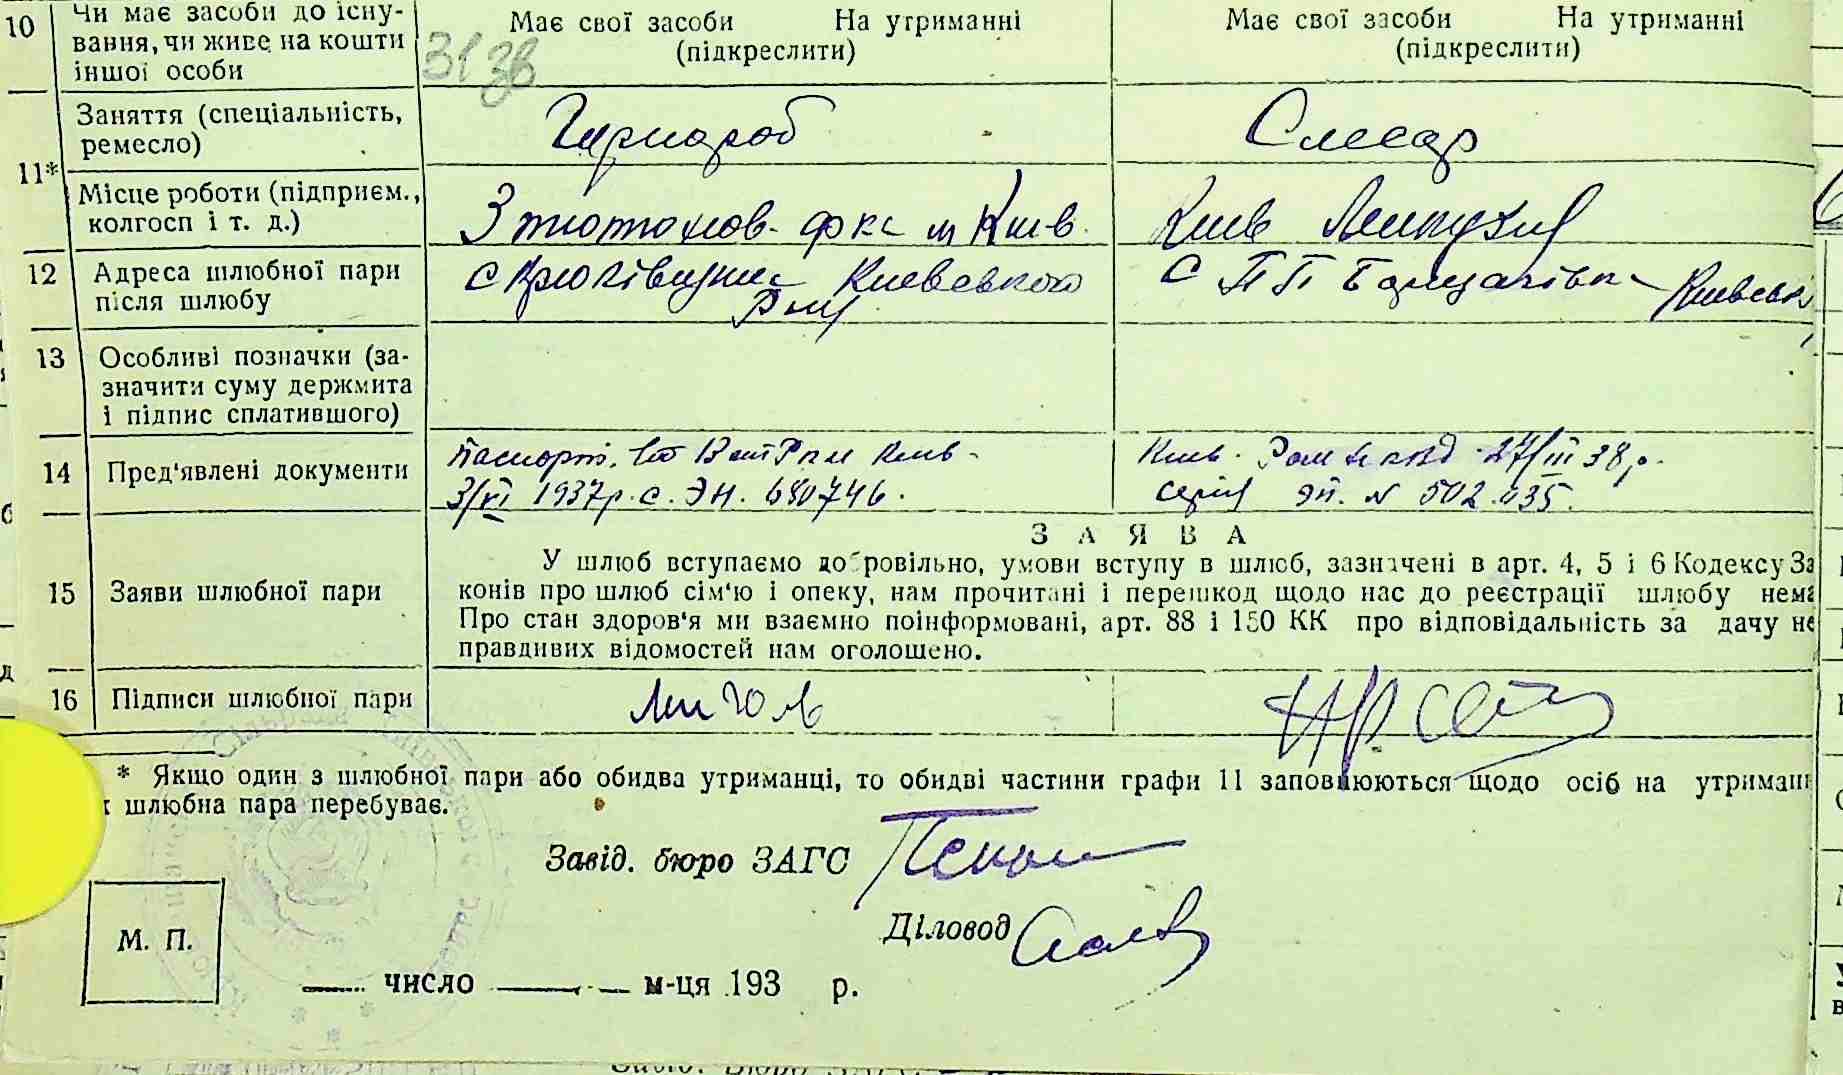 10 Чи має засоби до існу-
вання, чи живе на кошти
іншої особи
Має свої засоби На утриманні
(підкреслити)
Має свої засоби На утриманні
(підкреслити)
11* Заняття (спеціальність,
ремесло)
Слесар
Місце роботи (підприєм.,
колгосп і т. д.)
3 тютюнов. ф-ка м Київ.
Київ
12 Адреса шлюбної пари
після шлюбу
с Крюківщина Киевського
Рну
с ПП Борщагівка Киевськ
13 Особливі позначки (за-
значити суму держмита
і підпис сплатившого)
14 Пред'явлені документи
Паспорт. Київ.
3/VI 1937р. с. ЭН. 680746.
Київ. 27/III 38 р.
серія ЭП. N 502.035.
З А Я В А
15 Заяви шлюбної пари
У шлюб вступаємо добровільно, умови вступу в шлюб, зазначені в арт. 4, 5 і 6 Кодексу За
конів про шлюб сім'ю і опеку, нам прочитані і перешкод щодо нас до реєстрації шлюбу нема
Про стан здоров'я ми взаємно поінформовані, арт. 88 і 150 КК про відповідальність за дачу не
правдивих відомостей нам оголошено.
16 Підписи шлюбної пари
* Якщо один з шлюбної пари або обидва утриманці, то обидві частини графи 11 заповнюються щодо осіб на утриман
шлюбна пара перебуває.
Завід. бюро ЗАГС
Діловод
М. П.
число м-ця 193 р.